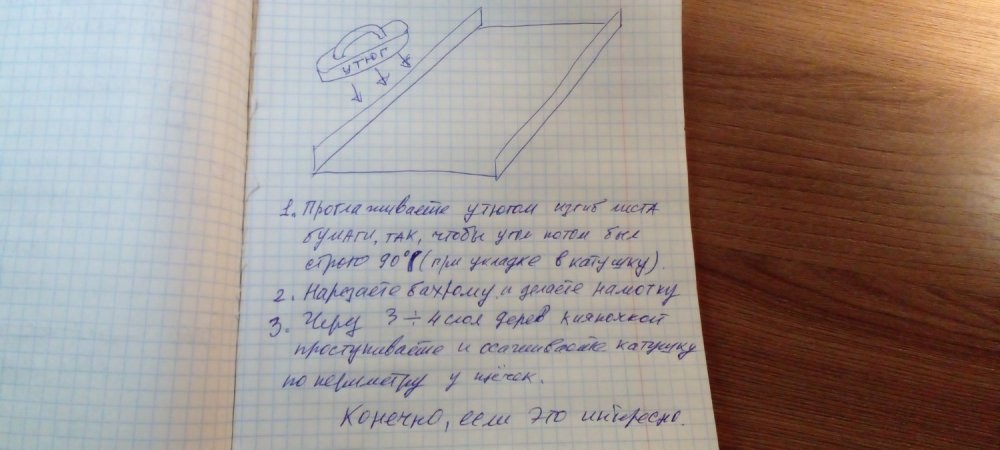 УТЮГ
1. Проглаживаете утюгом изгиб листа
бумаги, так, чтобы угол потом был
строго 90° (при укладке в катушку).
2. Нарезаете бахрому и делаете намотку
3. Через 3÷4 слоя дерев киянкой
простукиваете и осаживаете катушку
по периметру у щёчек.
Конечно, если это интересно.